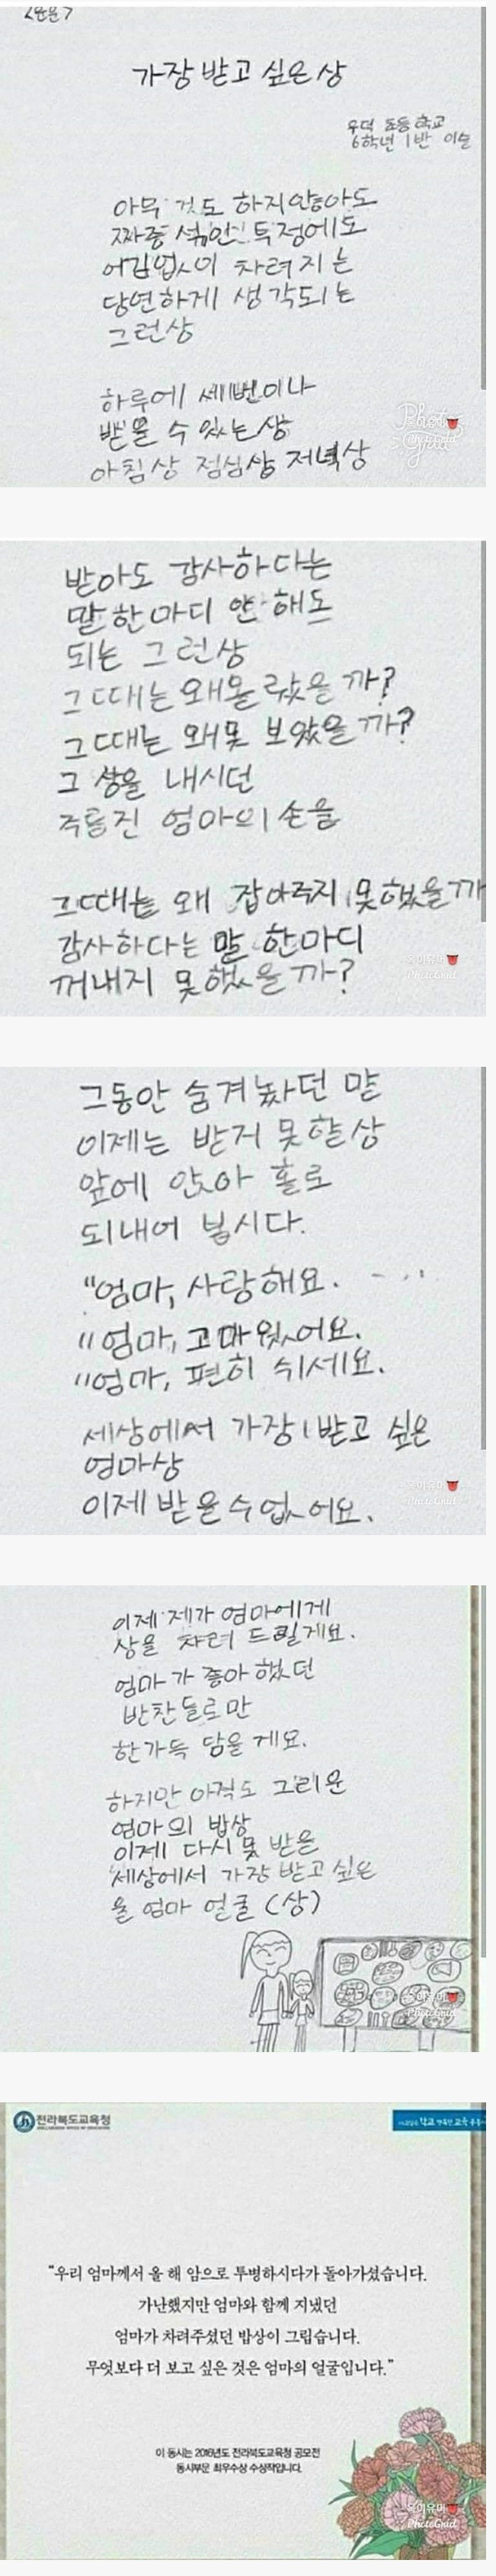 <운문>
가장 받고 싶은 상
우덕 초등학교
6학년 1반 이슬
아무 것도 하지않아도
짜증 섞인 투정에도
어김없이 차려지는
당연하게 생각되는
그런상
하루에 세번이나
받을 수 있는상
아침상 점심상 저녁상
Photo Grid
받아도 감사하다는
말 한마디 안 해도
되는 그런상
그때는 왜몰랐을 까?
그때는 왜못 보았을까?
그 상을 내시던
주름진 엄마의 손을
그때는 왜 잡아주지 못했을까
감사하다는 말 한마디
꺼내지 못했을까?
PhotoGrid
그동안 숨겨놨던 말
이제는 받지 못할상
앞에 앉아 홀로
되내어 봅시다.
"엄마, 사랑해요.
"엄마, 고마웠어요.
"엄마, 편히 쉬세요.
세상에서 가장 받고 싶은
엄마상
이제 받을수없어요.
PhotoGrid
이제 제가 엄마에게
상을 차려 드릴게요.
엄마가 좋아했던
반찬들로만
한가득 담을게요.
하지만 아직도 그리운
엄마의 밥상
이제 다시 못 받을
세상에서 가장 받고 싶은
울 엄마 얼굴 (상)
PhotoGrid
전라북도교육청
"우리 엄마께서 올 해 암으로 투병하시다가 돌아가셨습니다.
가난했지만 엄마와 함께 지냈던
엄마가 차려주셨던 밥상이 그립습니다.
무엇보다 더 보고 싶은 것은 엄마의 얼굴입니다."
이 동시는 2016년도 전라북도교육청 공모전
동시부문 최우수상 수상작입니다.
PhotoGrid